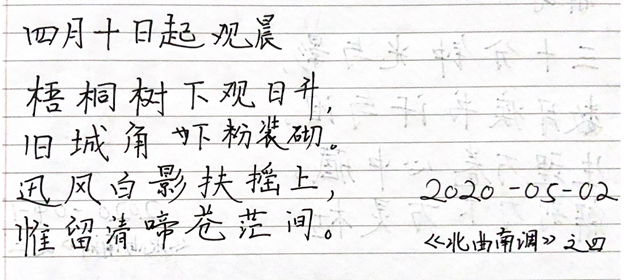 四月十日起观晨
梧桐树下观日升,
旧城角下粉装砌。
迅风白影扶摇上,
惟留清啼苍茫间。
2020-05-02
《北曲南调》之四